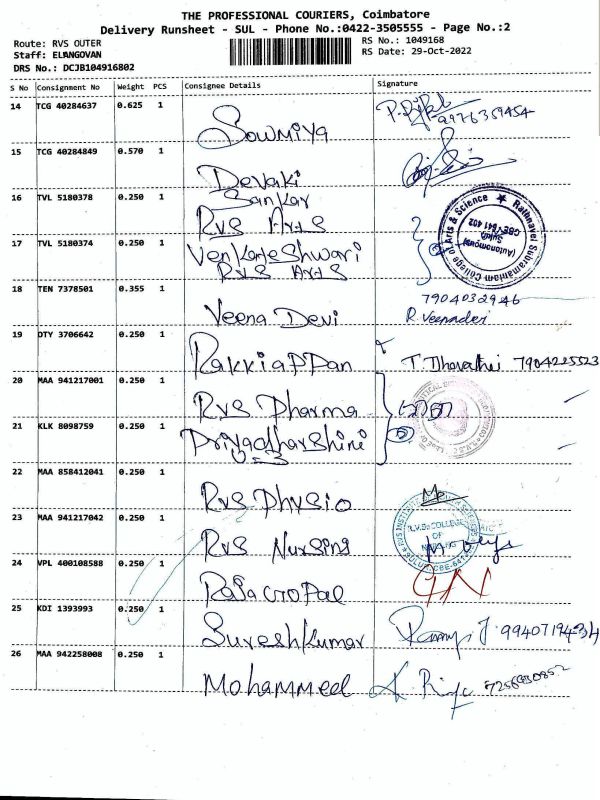 THE PROFESSIONAL COURIERS, Coimbatore
Delivery Runsheet - SUL - Phone No.:0422-3505555 - Page No.:2
Route: RVS OUTER
RS No.: 1049168
Staff: ELANGOVAN
RS Date: 29-Oct-2022
DRS No.: DCJB104916802
S No Consignment No Weight PCS Consignee Details Signature
14 TCG 40284637 0.625 1
Sowmiya
9976359454
15 TCG 40284849 0.570 1
Devaki
Sankar
16 TVL 5180378 0.250 1
RVS Arts
Rathnavel Subramaniam College of Arts & Science
(Autonomous)
Sulur
CBE - 641 402
17 TVL 5180374 0.250 1
Venkateshwari
RVS Arts
18 TEN 7378501 0.355 1
7904032946
Veena Devi R. Veenadevi
19 DTY 3706642 0.250 1
Rakkiappan T. Dharathi 7904225523
20 MAA 941217001 0.250 1
RVS Pharma
21 KLK 8098759 0.250 1
Priyadharshini
22 MAA 858412041 0.250 1
RVS Physio
23 MAA 941217042 0.250 1
R.V.S. COLLEGE
OF
NURSING
RVS Nursing
24 VPL 400108588 0.250 1
Rajagopal
25 KDI 1393993 0.250 1
Sureshkumar 9940719434
26 MAA 942258008 0.250 1
Mohammeel